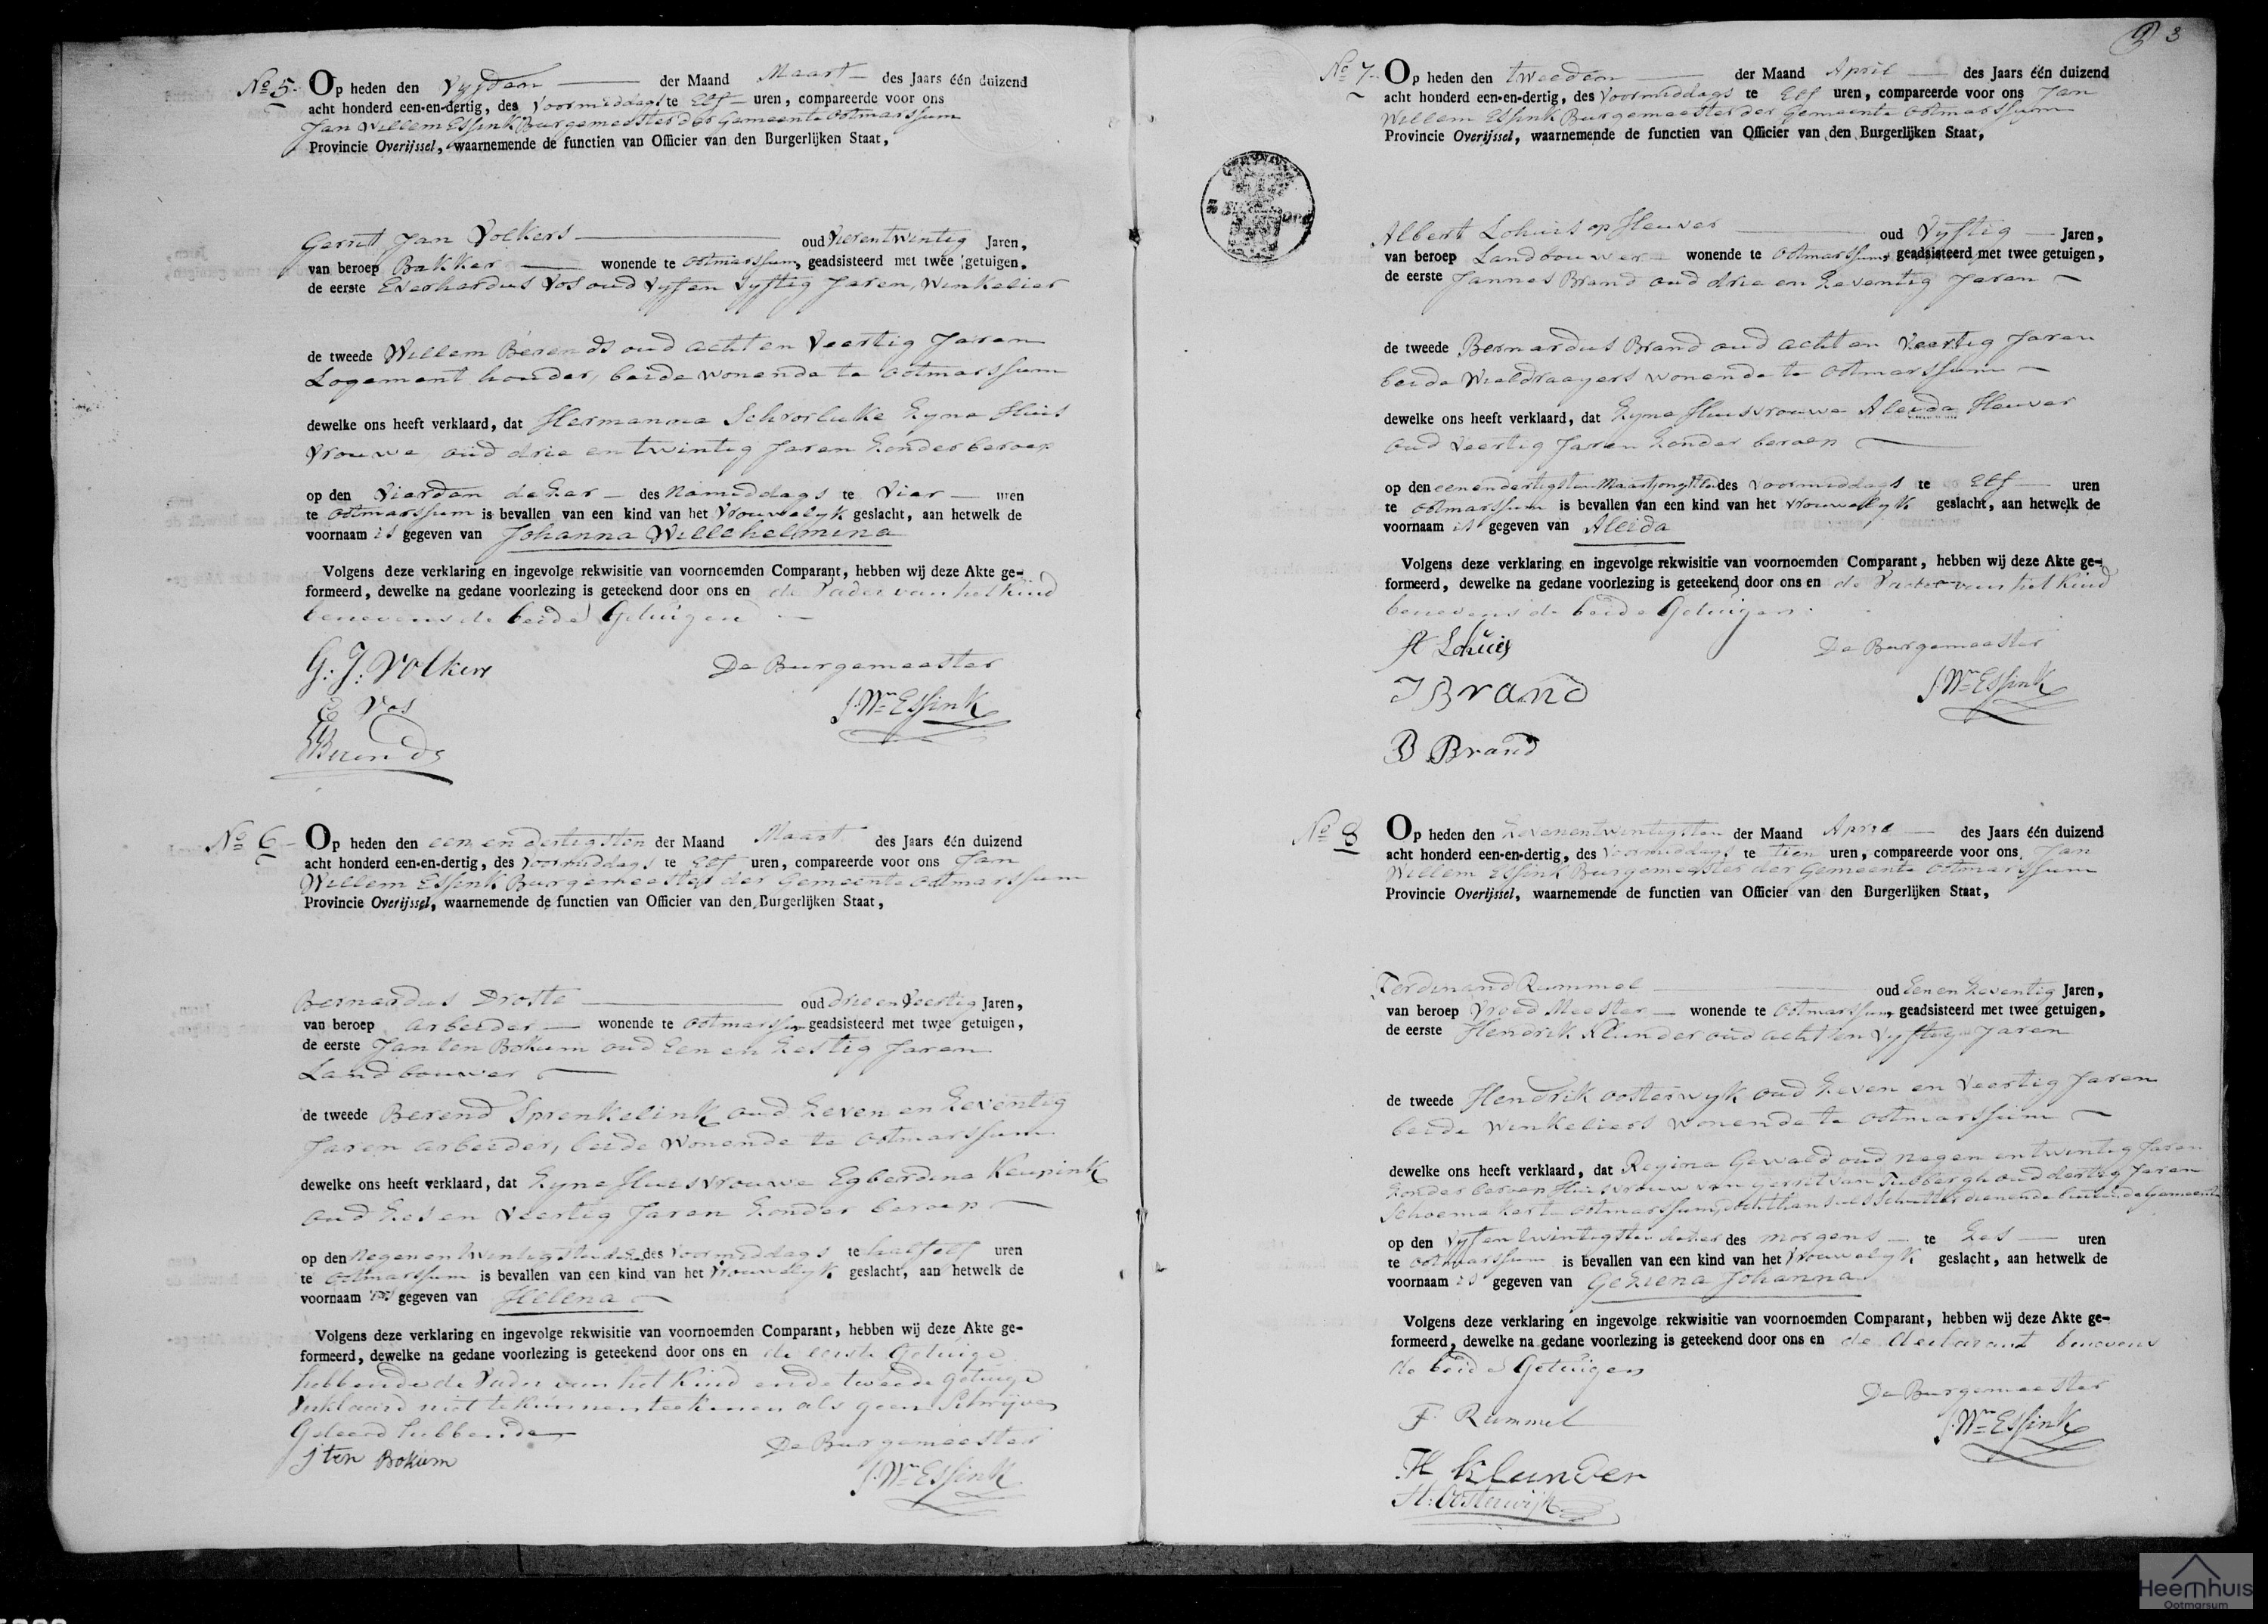 No 5. Op heden den Vyfden der Maand Maart des Jaars één duizend
acht honderd een-en-dertig, des Voormiddags te Elf uren, compareerde voor ons
Jan Willem Essink Burgemeester der Gemeente Ootmarssum
Provincie Overijssel, waarnemende de functien van Officier van den Burgerlijken Staat,
Gerrit Jan Volkers oud Vierentwintig Jaren,
van beroep Bakker wonende te Ootmarssum, geadsisteerd met twee getuigen,
de eerste Everhardus Vos oud Vyf en Vyftig Jaren, Winkelier
de tweede Willem Berends oud acht en Veertig Jaren
Logement houder, beide wonende te Ootmarssum
dewelke ons heeft verklaard, dat Hermanna Schrorlueke Zyne Huis
Vrouwe, oud drie en twintig Jaren Zonder beroep
op den Vierden dezer des Namiddags te Vier uren
te Ootmarssum is bevallen van een kind van het Vrouwelyk geslacht, aan hetwelk de
voornaam is gegeven van Johanna Willehelmina
Volgens deze verklaring en ingevolge rekwisitie van voornoemden Comparant, hebben wij deze Akte ge-
formeerd, dewelke na gedane voorlezing is geteekend door ons en de Vader van het Kind
benevens de beide Getuigen
G: J: Volkers De Burgemeester
E Vos J. Wm Essink
WBerends
No 6 Op heden den een en dertigsten der Maand Maart des Jaars één duizend
acht honderd een-en-dertig, des Voormiddags te Elf uren, compareerde voor ons Jan
Willem Essink Burgemeester der Gemeente Ootmarssum
Provincie Overijssel, waarnemende de functien van Officier van den Burgerlijken Staat,
Bernardus Droste oud Drie en Veertig Jaren,
van beroep arbeider wonende te Ootmarssum geadsisteerd met twee getuigen,
de eerste Jan ten Bokum oud Een en Zestig Jaren
Landbouwer
de tweede Berend Sprenkelink oud Zeven en Zeventig
Jaren arbeider, beide Wonende te Ootmarssum
dewelke ons heeft verklaard, dat Zyne Huisvrouwe Egberdina Keupink
oud Zes en Veertig Jaren Zonder beroep
op den Negenentwintigsten dezer des Voormiddags te half elf uren
te Ootmarssum is bevallen van een kind van het Vrouwelyk geslacht, aan hetwelk de
voornaam is gegeven van Helena
Volgens deze verklaring en ingevolge rekwisitie van voornoemden Comparant, hebben wij deze Akte ge-
formeerd, dewelke na gedane voorlezing is geteekend door ons en de eerste Getuige
hebbende de Vader van het Kind en de tweede getuige
Verklaard niet te kunnen teekenen als geen Schrijven
Geleerd hebbende
J ten Bokum De Burgemeester
J. Wm Essink
3
No 7. Op heden den tweeden der Maand April des Jaars één duizend
acht honderd een-en-dertig, des Voormiddags te Elf uren, compareerde voor ons Jan
Willem Essink Burgemeester der Gemeente Ootmarssum
Provincie Overijssel, waarnemende de functien van Officier van den Burgerlijken Staat,
Albert Lohuis op Heuver oud Vyftig Jaren,
van beroep Landbouwer wonende te Ootmarssum, geadsisteerd met twee getuigen,
de eerste Jannes Brand oud drie en Zeventig Jaren
de tweede Bernardus Brand oud acht en Veertig Jaren
beide Wieldraayers wonende te Ootmarssum
dewelke ons heeft verklaard, dat Zyne Huisvrouwe Aleida Heuver
oud Veertig Jaren Zonder beroep
op den eenendertigsten Maart jongstl. des Voormiddags te Elf uren
te Ootmarssum is bevallen van een kind van het Vrouwelyk geslacht, aan hetwelk de
voornaam is gegeven van Aleida
Volgens deze verklaring en ingevolge rekwisitie van voornoemden Comparant, hebben wij deze Akte ge-
formeerd, dewelke na gedane voorlezing is geteekend door ons en de Vader van het Kind
benevens de beide Getuigen.
A Lohuis De Burgemeester
J Brand J. Wm Essink
B Brand
No 8 Op heden den Zevenentwintigsten der Maand April des Jaars één duizend
acht honderd een-en-dertig, des Voormiddags te tien uren, compareerde voor ons, Jan
Willem Essink Burgemeester der Gemeente Ootmarssum
Provincie Overijssel, waarnemende de functien van Officier van den Burgerlijken Staat,
Ferdinand Rummel oud Een en Zeventig Jaren,
van beroep Vroed Meester wonende te Ootmarssum, geadsisteerd met twee getuigen,
de eerste Hendrik Klunder oud acht en Vyftig Jaren
de tweede Hendrik Oosterwyk oud Zeven en Veertig Jaren
beide Winkeliers wonende te Ootmarssum
dewelke ons heeft verklaard, dat Regina Gewald oud negen en twintig Jaren
Zonder beroep Huisvrouw van Gerrit van Tubbergh oud dertig Jaren
Schoemaker te Ootmarssum, dochthans als Schutter dienende buiten de Gemeente
op den Vyfentwintigsten dezer des morgens te Zes uren
te Ootmarssum is bevallen van een kind van het Vrouwelyk geslacht, aan hetwelk de
voornaam is gegeven van Geziena Johanna
Volgens deze verklaring en ingevolge rekwisitie van voornoemden Comparant, hebben wij deze Akte ge-
formeerd, dewelke na gedane voorlezing is geteekend door ons en de declarant benevens
de beide Getuigen
De Burgemeester
F. Rummel J. Wm Essink
H Klunder
H: Oosterwijk
Heemhuis
Ootmarsum